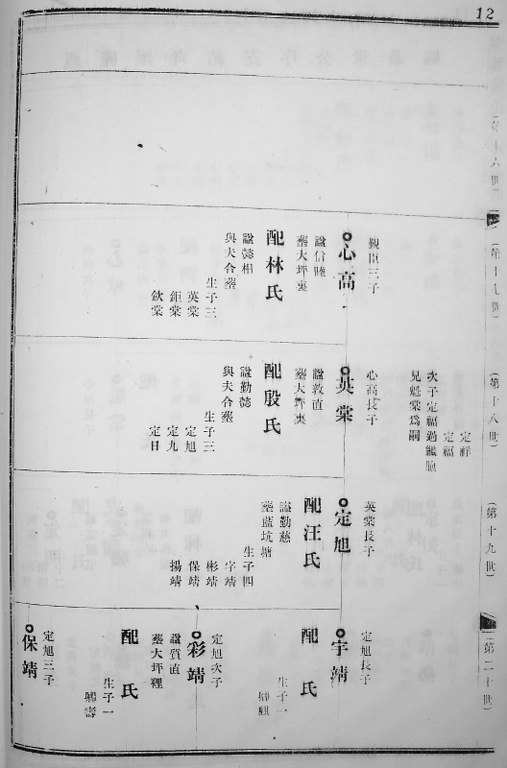 12
第十七世
觀臣三子
心高
諡信賺
塟大坪裏
配林氏
諡懿相
與夫合塟
生子三
英棠
鉅棠
欽棠
第十八世
定祥
定福
次子定福過繼胞
兄魁棠為嗣
心高長子
英棠
諡敦直
塟大坪裏
配殷氏
諡勤懿
與夫合塟
生子三
定旭
定九
定日
第十九世
英棠長子
定旭
配汪氏
諡勤慈
塟藍坑塘
生子四
字靖
彬靖
保靖
揚靖
第二十世
定旭長子
宇靖
配 氏
生子一
定旭次子
彩靖
諡質直
塟大坪裡
配 氏
生子一
定旭三子
保靖